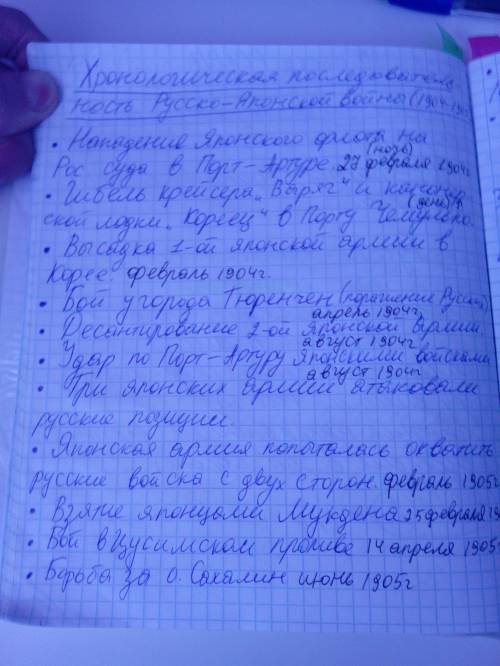 Хронологическая последователь
ность Русско-Японской войны (1904-1905
• Нападение Японского флота на
(ночь)
Рос суда в Порт-Артуре. 27 февраля 1904г
• Гибель крейсера „Варяг" и канонер
(день)
ской лодки „Кореец" в Порту Чемульпо.
• Высадка 1-ой японской армии в
Корее. февраль 1904г.
• Бой у города Тюренчен (поражение Русских)
апрель 1904г
• Десантирование 2-ой Японской армии.
август 1904г
• Удар по Порт-Артуру Японскими войсками
август 1904г.
• Три японских армии атаковали
русские позиции.
• Японская армия попыталась охватить
русские войска с двух сторон. февраль 1905г
• Взятие японцами Мукдена 25 февраля 19
• Бой в Цусимском проливе 14 апреля 1905
• Борьба за о. Сахалин июнь 1905г